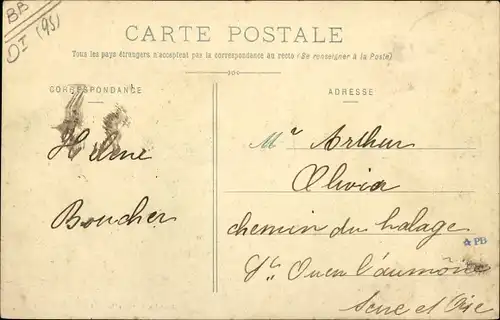 BB
OI (95)
CARTE POSTALE
Tous les pays étrangers n'acceptent pas la correspondance au recto (Se renseigner à la Poste)
CORRESPONDANCE
ADRESSE
Mr Arthur
Olivia
chemin du halage
St Ouen l'aumône
Seine et Oise
Hélène
Boucher
☆ PB